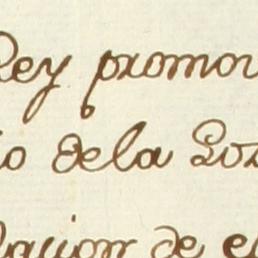 Rey promov
io de la Luz
acion de e